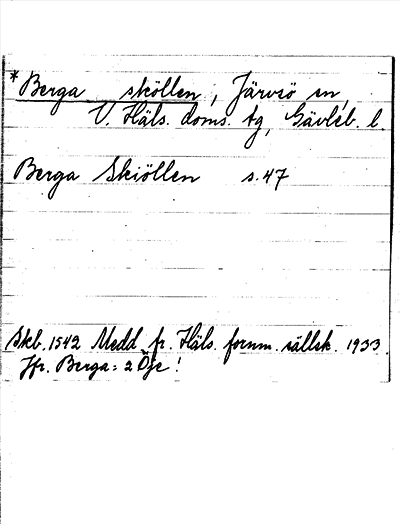 *Berga sköllen, Järvsö sn,
V. Häls. doms. tg, Gävleb. l.
Berga Skiöllen s. 47
Skb. 1542 Medd. fr. Häls. fornm. sällsk. 1933
Jfr. Berga = 2 Öje!